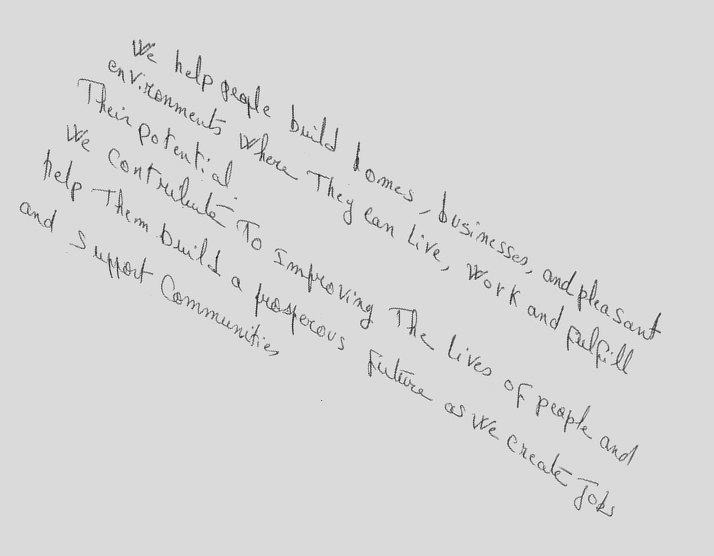 We help people build homes, businesses, and pleasant
environments where They can Live, Work and fulfill
Their potential.
We contribute To Improving The Lives of people and
help Them build a prosperous future as we create Jobs
and Support Communities